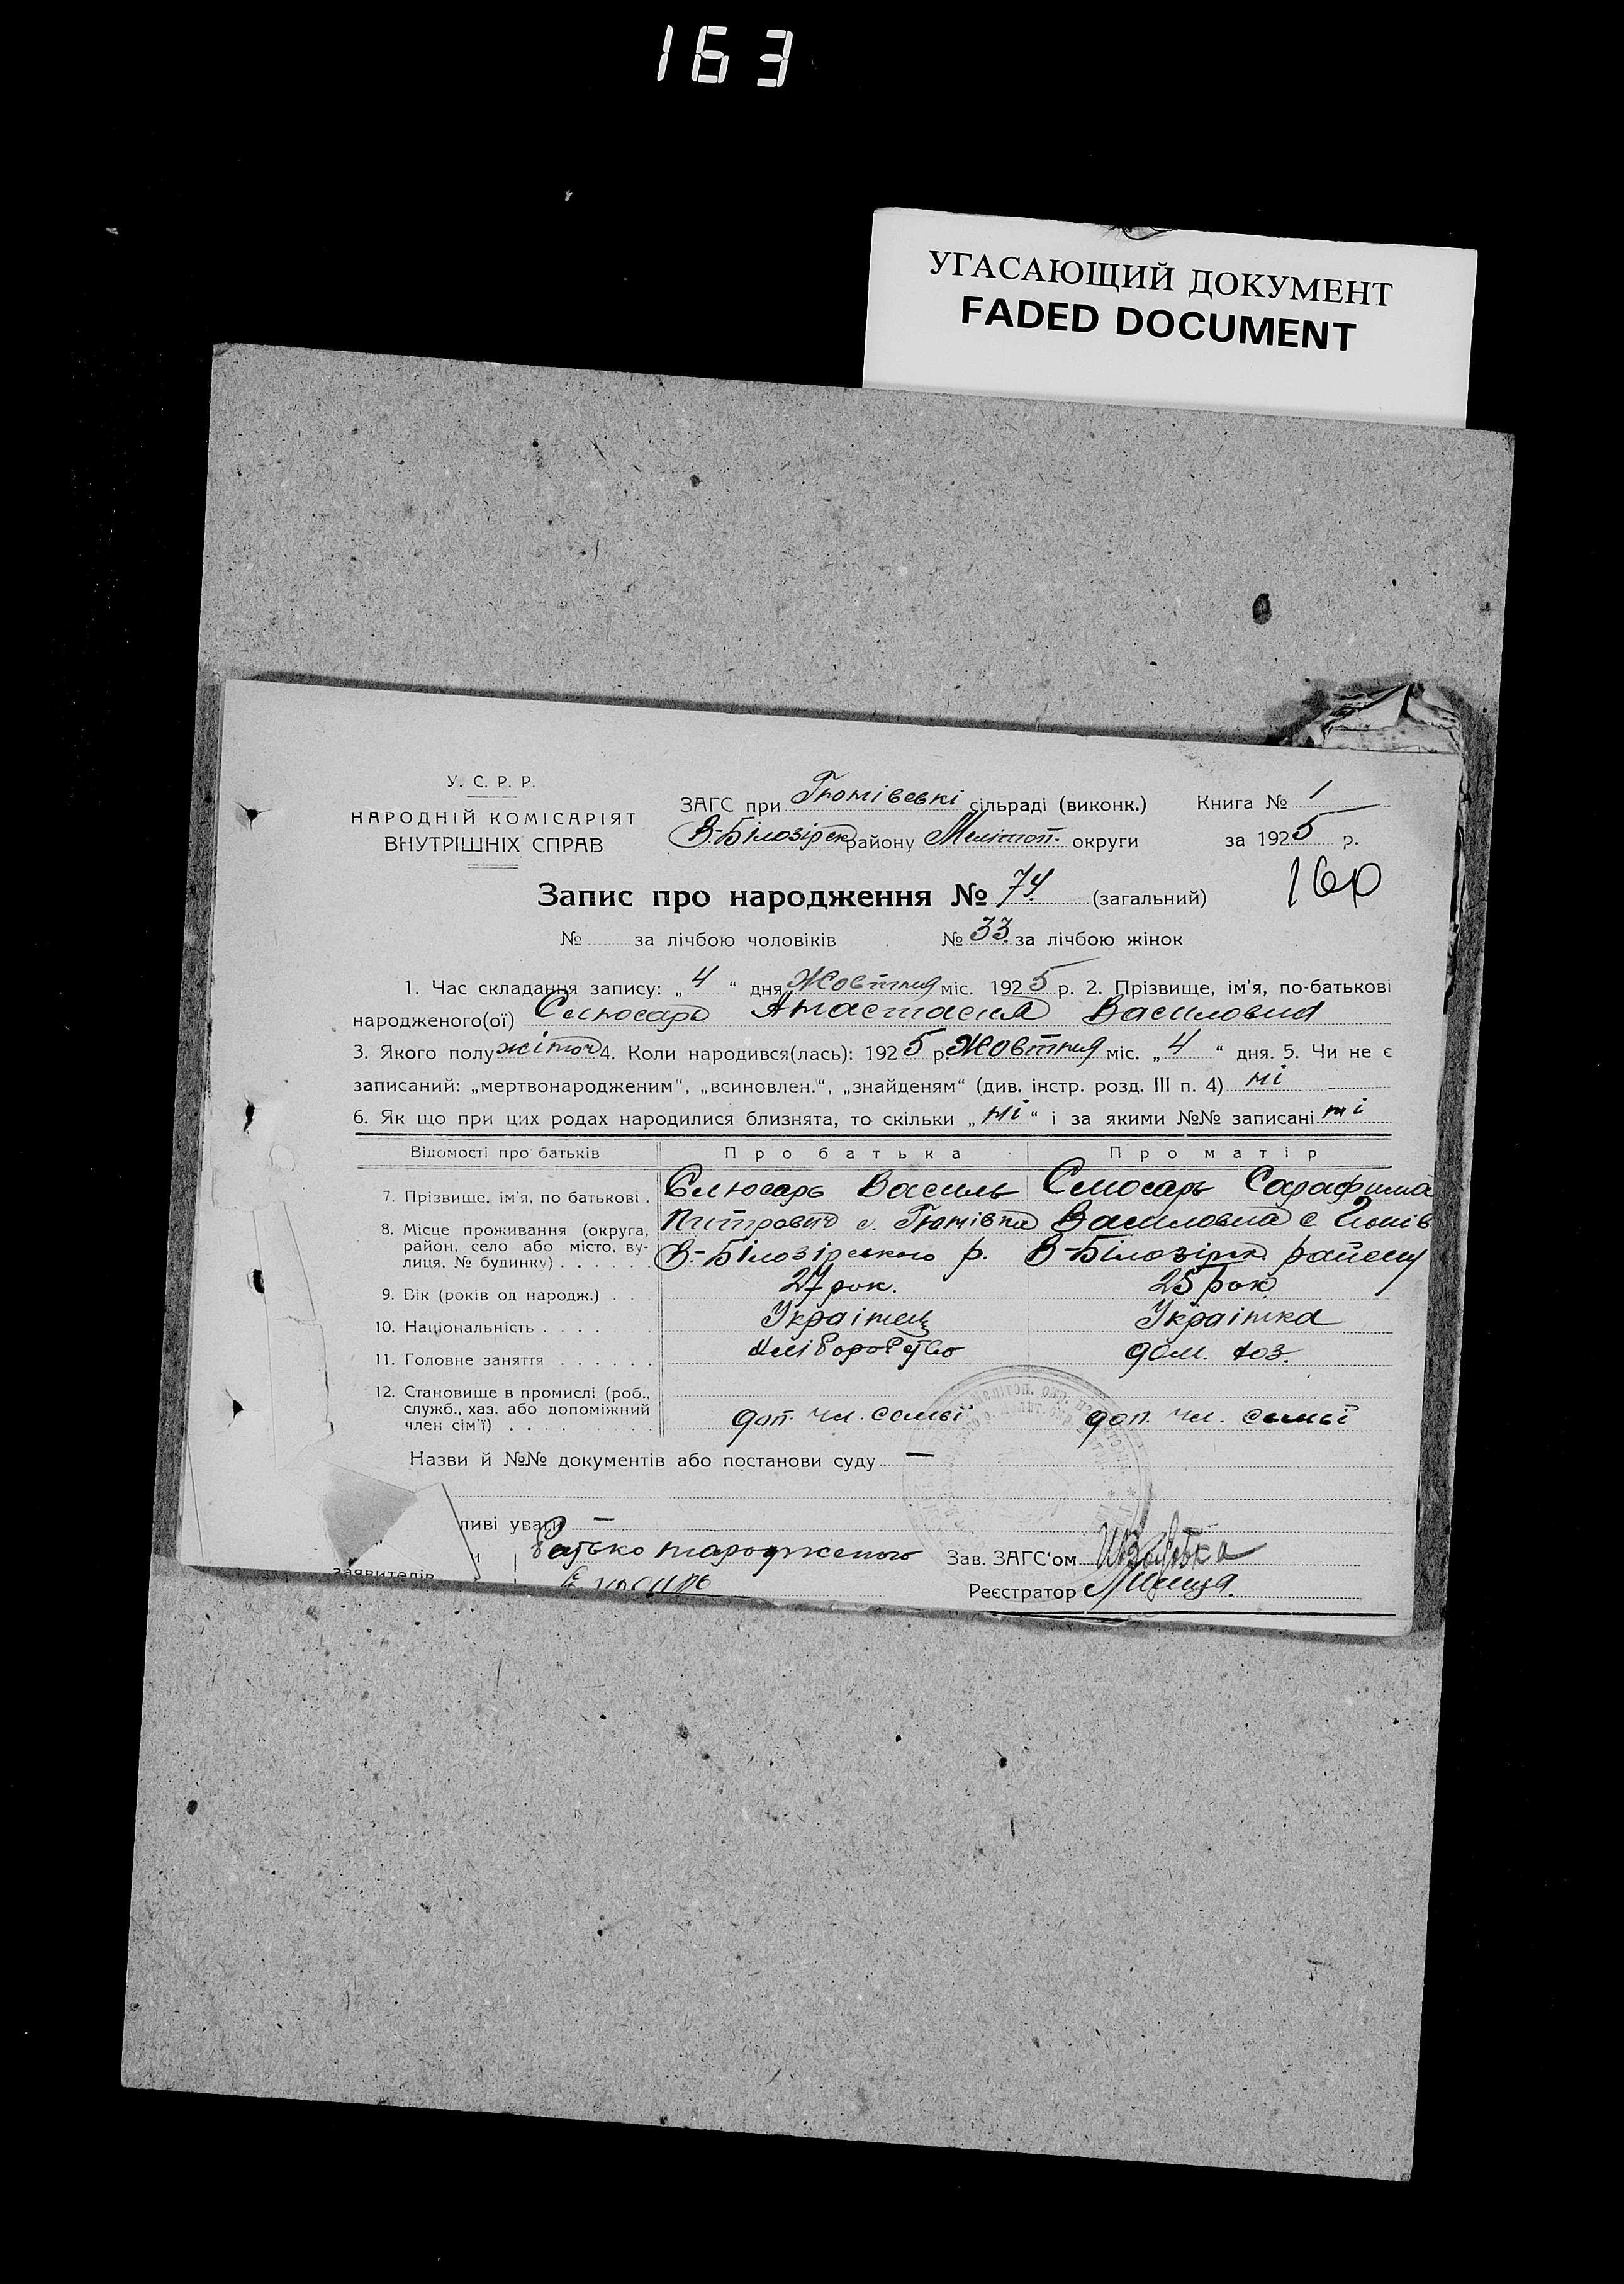 163
УГАСАЮЩИЙ ДОКУМЕНТ
FADED DOCUMENT
У. С. Р. Р.
НАРОДНІЙ КОМІСАРІЯТ
ВНУТРІШНІХ СПРАВ
ЗАГС при Гюнівській сільраді (виконк.)
В-Білозірск району Мелітоп. округи
Книга № 1
за 1925 р.
160
Запис про народження № 74 (загальний)
№ за лічбою чоловіків № 33 за лічбою жінок
1. Час складання запису: „4“ дня Жовтня міс. 1925 р. 2. Прізвище, ім'я, по-батькові
народженого(ої) Слюсарь Анастасия Василовна
3. Якого полу жіноч 4. Коли народився(лась): 1925 р Жовтня міс. „4“ дня. 5. Чи не є
записаний: „мертвонародженим“, „всиновлен.“, „знайденям“ (див. інстр. розд. III п. 4) ні
6. Як що при цих родах народилися близнята, то скільки „ні“ і за якими №№ записані ні
Відомості про батьків Про батька Про матір
7. Прізвище, ім'я, по батькові . Слюсарь Василь Слюсарь Сарафина
8. Місце проживання (округа, район, село або місто, вулиця, № будинку) . . . . . . Питрович с. Гюнівка Василовна с Гюнів
В-Білозірського р. В-Білозірск району
9. Вік (років од народж.) . . . 27 рок. 25 рок
10. Національність . . . . Украінец Украінка
11. Головне заняття . . . . . . хліборобство дом. хоз.
12. Становище в промислі (роб., служб., хаз. або допоміжний член сім'ї) . . . . доп. чл. семьї доп. чл. семьї
Назви й №№ документів або постанови суду —
ливі уваги —
батько народженого Зав. ЗАГС'ом
заявителів Реєстратор